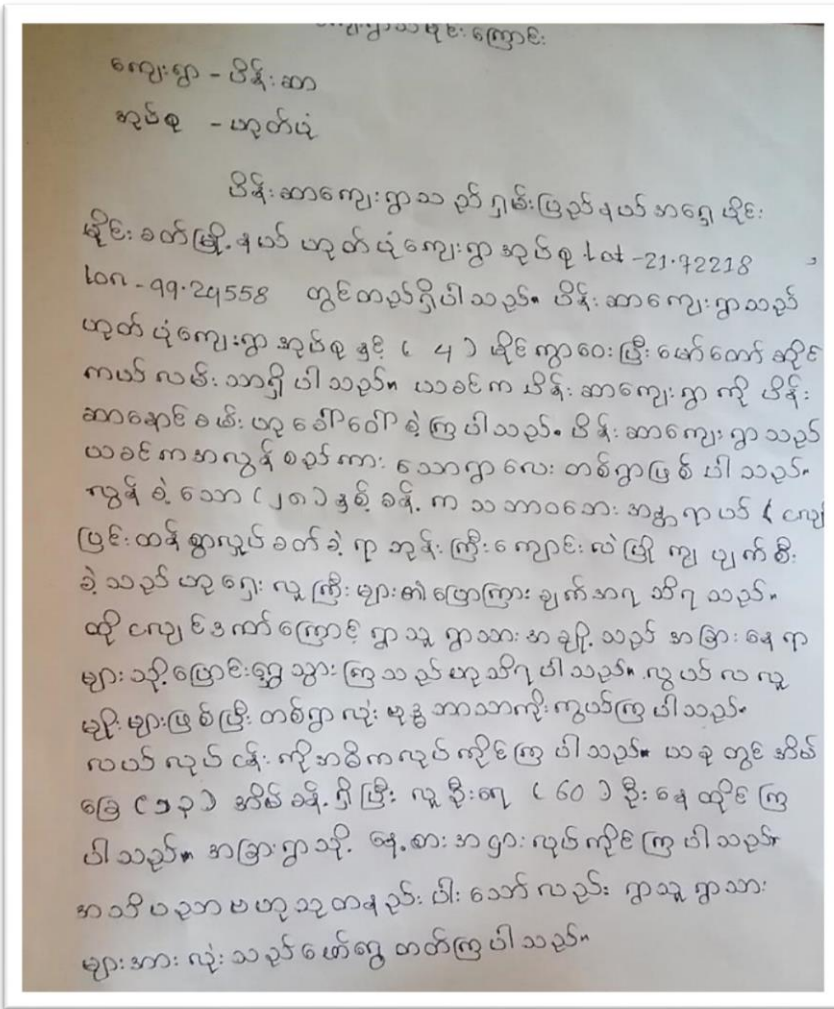 ကျေးရွာသမိုင်းကြောင်း
ကျေးရွာ - ပိန်းဆာ
အုပ်စု - ဟုတ်ပုံ
ပိန်းဆာကျေးရွာသည် ရှမ်းပြည်နယ် အရှေ့ပိုင်း
မိုင်းခတ်မြို့နယ် ဟုတ်ပုံကျေးရွာအုပ်စု Lat -21.72218
lon - 99.24558 တွင်တည်ရှိပါသည်။ ပိန်းဆာကျေးရွာသည်
ဟုတ်ပုံကျေးရွာအုပ်စုနှင့် ( 4 ) မိုင်ကွာဝေးပြီး မော်တော်ဆိုင်
ကယ်လမ်းသာရှိပါသည်။ ယခင်က ပိန်းဆာကျေးရွာကို ပိန်း
ဆာနောင်ခမ်းဟု ခေါ်ဝေါ်ခဲ့ကြပါသည်။ ပိန်းဆာကျေးရွာသည်
ယခင်ကအလွန်စည်ကားသောရွာလေးတစ်ရွာဖြစ်ပါသည်။
လွန်ခဲ့သော (၂၈) နှစ်ခန့်က သဘာဝဘေးအန္တရာယ် ( ငလျင်
ပြင်းထန်စွာလှုပ်ခတ်ခဲ့ရာ ဘုန်းကြီးကျောင်းလဲပြိုကျပျက်စီး
ခဲ့သည်ဟု ရှေးလူကြီးများ၏ပြောကြားချက်အရ သိရသည်။
ထိုငလျင်ဒဏ်ကြောင့် ရွာသူရွာသားအချို့သည် အခြားနေရာ
များသို့ပြောင်းရွှေ့သွားကြသည်ဟုသိရပါသည်။ လွယ်လလူ
မျိုးများဖြစ်ပြီး တစ်ရွာလုံးဗုဒ္ဓဘာသာကိုးကွယ်ကြပါသည်။
လယ်လုပ်ငန်းကိုအဓိကလုပ်ကိုင်ကြပါသည်။ ယခုတွင် အိမ်
ခြေ (၁၃) အိမ်ခန့်ရှိပြီး လူဦးရေ ( 60 ) ဦးနေထိုင်ကြ
ပါသည်။ အခြားရွာသို့ နေ့စားအငှားလုပ်ကိုင်ကြပါသည်။
အသိပညာဗဟုသုတနည်းပါးသော်လည်း ရွာသူရွာသား
များအားလုံးသည်ဖော်ရွေတတ်ကြပါသည်။